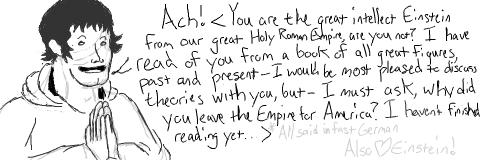 Ach! <You are the great intellect Einstein
from our great Holy Roman Empire, are you not? I have
read of you from a book of all great figures,
past and present - I would be most pleased to discuss
theories with you, but - I must ask, why did
you leave the Empire for America? I haven't finished
reading yet...> *All said in fast German
Also ♡ Einstein!